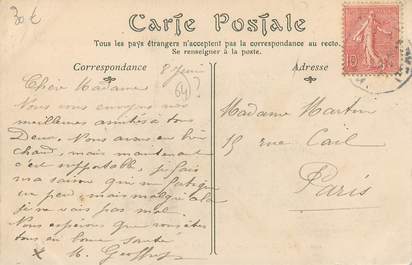 30€
Carte Postale
Tous les pays étrangers n'acceptent pas la correspondance au recto.
Se renseigner à la poste.
Correspondance
Adresse
8 Juin
(64)
10
Chère Madame
Nous vous envoyons nos
meilleures amitiés à tous
Deux. Nous avons eu bien
chaud, mais maintenant
c'est supportable, je fais
ma saison qui me fatigue
un peu mais malgré cela
je ne vais pas mal
Nous espérons que vous êtes
tous en bonne santé
M. Geoffroy
Madame Martin
15 rue Cail
Paris